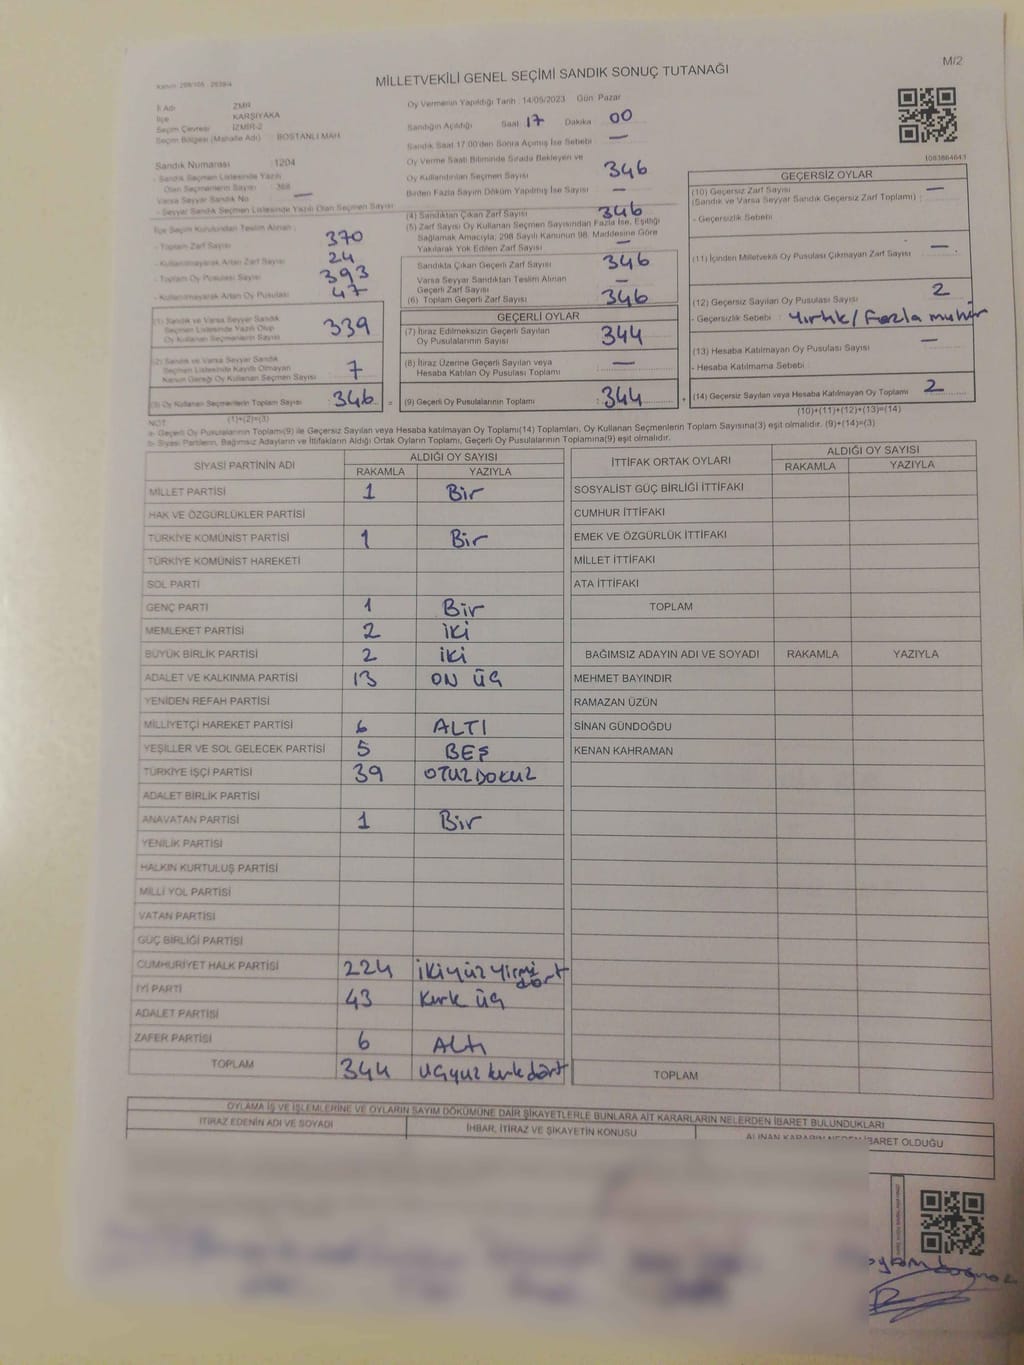 M/2
MİLLETVEKİLİ GENEL SEÇİMİ SANDIK SONUÇ TUTANAĞI
İl Adı İZMİR
İlçe KARŞIYAKA
Seçim Çevresi İZMİR-2
Seçim Bölgesi (Mahalle Adı) BOSTANLI MAH
Sandık Numarası : 1204
- Sandık Seçmen Listesinde Yazılı
Olan Seçmenlerin Sayısı : 368
Varsa Seyyar Sandık No —
- Seyyar Sandık Seçmen Listesinde Yazılı Olan Seçmen Sayısı
İlçe Seçim Kurulundan Teslim Alınan ;
- Toplam Zarf Sayısı 370
- Kullanılmayarak Artan Zarf Sayısı 24
- Toplam Oy Pusulası Sayısı 393
- Kullanılmayarak Artan Oy Pusulası 47
(1) Sandık ve Varsa Seyyar Sandık
Seçmen Listesinde Yazılı Olup
Oy Kullanan Seçmenlerin Sayısı 339
(2) Sandık ve Varsa Seyyar Sandık
Seçmen Listesinde Kayıtlı Olmayan
Kanun Gereği Oy Kullanan Seçmen Sayısı 7
(3) Oy Kullanan Seçmenlerin Toplam Sayısı : 346 =
Oy Vermenin Yapıldığı Tarih : 14/05/2023 Gün Pazar
Sandığın Açıldığı Saat 17 Dakika 00
Sandık Saat 17.00'den Sonra Açılmış İse Sebebi —
Oy Verme Saati Bitiminde Sırada Bekleyen ve
Oy Kullandırılan Seçmen Sayısı 346
Birden Fazla Sayım Döküm Yapılmış İse Sayısı —
(4) Sandıktan Çıkan Zarf Sayısı 346
(5) Zarf Sayısı Oy Kullanan Seçmen Sayısından Fazla İse, Eşitliği
Sağlamak Amacıyla; 298 Sayılı Kanunun 98. Maddesine Göre
Yakılarak Yok Edilen Zarf Sayısı —
Sandıkta Çıkan Geçerli Zarf Sayısı 346
Varsa Seyyar Sandıktan Teslim Alınan
Geçerli Zarf Sayısı
(6) Toplam Geçerli Zarf Sayısı 346
GEÇERLİ OYLAR
(7) İtiraz Edilmeksizin Geçerli Sayılan
Oy Pusulalarının Sayısı 344
(8) İtiraz Üzerine Geçerli Sayılan veya
Hesaba Katılan Oy Pusulası Toplamı —
(9) Geçerli Oy Pusulalarının Toplamı : 344 +
GEÇERSİZ OYLAR
(10) Geçersiz Zarf Sayısı —
(Sandık ve Varsa Seyyar Sandık Geçersiz Zarf Toplamı) :
- Geçersizlik Sebebi
(11) İçinden Milletvekili Oy Pusulası Çıkmayan Zarf Sayısı —
(12) Geçersiz Sayılan Oy Pusulası Sayısı 2
- Geçersizlik Sebebi : Yırtık/Fazla mühür
(13) Hesaba Katılmayan Oy Pusulası Sayısı —
- Hesaba Katılmama Sebebi :
(14) Geçersiz Sayılan veya Hesaba Katılmayan Oy Toplamı 2
NOT (1)+(2)=(3) (10)+(11)+(12)+(13)=(14)
a- Geçerli Oy Pusulalarının Toplamı(9) ile Geçersiz Sayılan veya Hesaba katılmayan Oy Toplamı(14) Toplamları, Oy Kullanan Seçmenlerin Toplam Sayısına(3) eşit olmalıdır. (9)+(14)=(3)
b- Siyasi Partilerin, Bağımsız Adayların ve İttifakların Aldığı Ortak Oyların Toplamı, Geçerli Oy Pusulalarının Toplamına(9) eşit olmalıdır.
SİYASİ PARTİNİN ADI ALDIĞI OY SAYISI
RAKAMLA YAZIYLA
MİLLET PARTİSİ 1 Bir
HAK VE ÖZGÜRLÜKLER PARTİSİ
TÜRKİYE KOMÜNİST PARTİSİ 1 Bir
TÜRKİYE KOMÜNİST HAREKETİ
SOL PARTİ
GENÇ PARTİ 1 Bir
MEMLEKET PARTİSİ 2 iKi
BÜYÜK BİRLİK PARTİSİ 2 iKi
ADALET VE KALKINMA PARTİSİ 13 ON ÜÇ
YENİDEN REFAH PARTİSİ
MİLLİYETÇİ HAREKET PARTİSİ 6 ALTI
YEŞİLLER VE SOL GELECEK PARTİSİ 5 BEŞ
TÜRKİYE İŞÇİ PARTİSİ 39 OTUZDOKUZ
ADALET BİRLİK PARTİSİ
ANAVATAN PARTİSİ 1 Bir
YENİLİK PARTİSİ
HALKIN KURTULUŞ PARTİSİ
MİLLİ YOL PARTİSİ
VATAN PARTİSİ
GÜÇ BİRLİĞİ PARTİSİ
CUMHURİYET HALK PARTİSİ 224 İKiyüzYirmi dört
İYİ PARTİ 43 Kırk üç
ADALET PARTİSİ
ZAFER PARTİSİ 6 Altı
TOPLAM 344 üçyüz kırkdört
İTTİFAK ORTAK OYLARI ALDIĞI OY SAYISI
RAKAMLA YAZIYLA
SOSYALİST GÜÇ BİRLİĞİ İTTİFAKI
CUMHUR İTTİFAKI
EMEK VE ÖZGÜRLÜK İTTİFAKI
MİLLET İTTİFAKI
ATA İTTİFAKI
TOPLAM
BAĞIMSIZ ADAYIN ADI VE SOYADI RAKAMLA YAZIYLA
MEHMET BAYINDIR
RAMAZAN ÜZÜN
SİNAN GÜNDOĞDU
KENAN KAHRAMAN
TOPLAM
OYLAMA İŞ VE İŞLEMLERİNE VE OYLARIN SAYIM DÖKÜMÜNE DAİR ŞİKAYETLERLE BUNLARA AİT KARARLARIN NELERDEN İBARET BULUNDUKLARI
İTİRAZ EDENİN ADI VE SOYADI İHBAR, İTİRAZ VE ŞİKAYETİN KONUSU ALINAN KARARIN NEDEN İBARET OLDUĞU